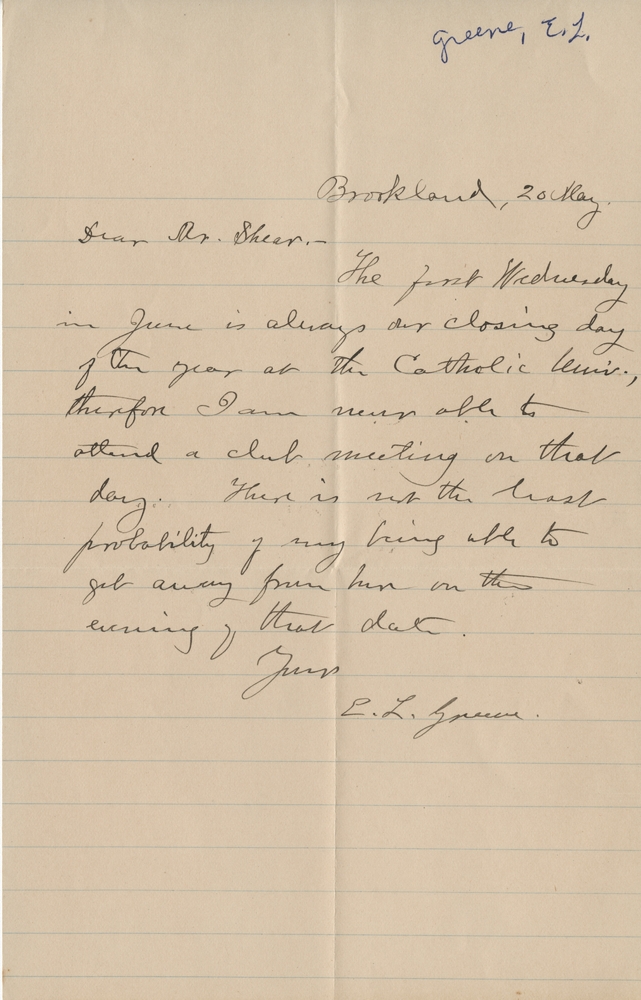 Greene, E.L.
Brookland, 20 May.
Dear Mr. Shear.—
The first Wednesday
in June is always our closing day
of the year at the Catholic Univ.,
therefore I am never able to
attend a club meeting on that
day. There is not the least
probability of my being able to
get away from here on the
evening of that date.
Yours
E. L. Greene.